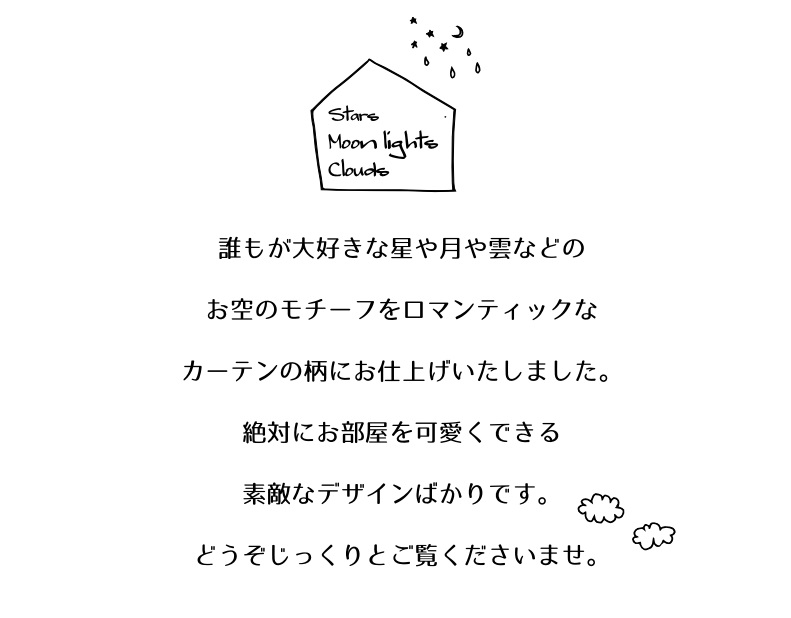 Stars
Moon lights
Clouds
誰もが大好きな星や月や雲などの
お空のモチーフをロマンティックな
カーテンの柄にお仕上げいたしました。
絶対にお部屋を可愛くできる
素敵なデザインばかりです。
どうぞじっくりとご覧くださいませ。